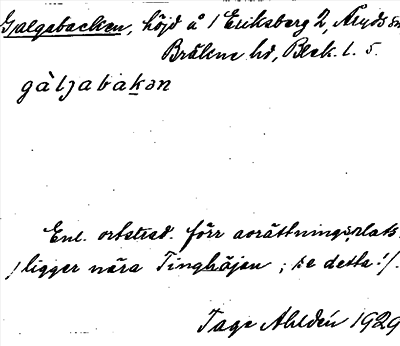 Galgabacken, höjd å 1 Eriksberg 2, Åryds sn
Bräkne hd, Blek. l. 5.
gàljabakən
Enl. ortstrad. förr avrättningsplats.
/ligger nära Tinghöjen ; se detta!/.
Tage Ahldén 1929